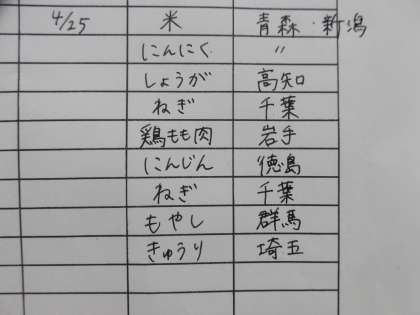 4/25 米 青森・新潟
にんにく 〃
しょうが 高知
ねぎ 千葉
鶏もも肉 岩手
にんじん 徳島
ねぎ 千葉
もやし 群馬
きゅうり 埼玉